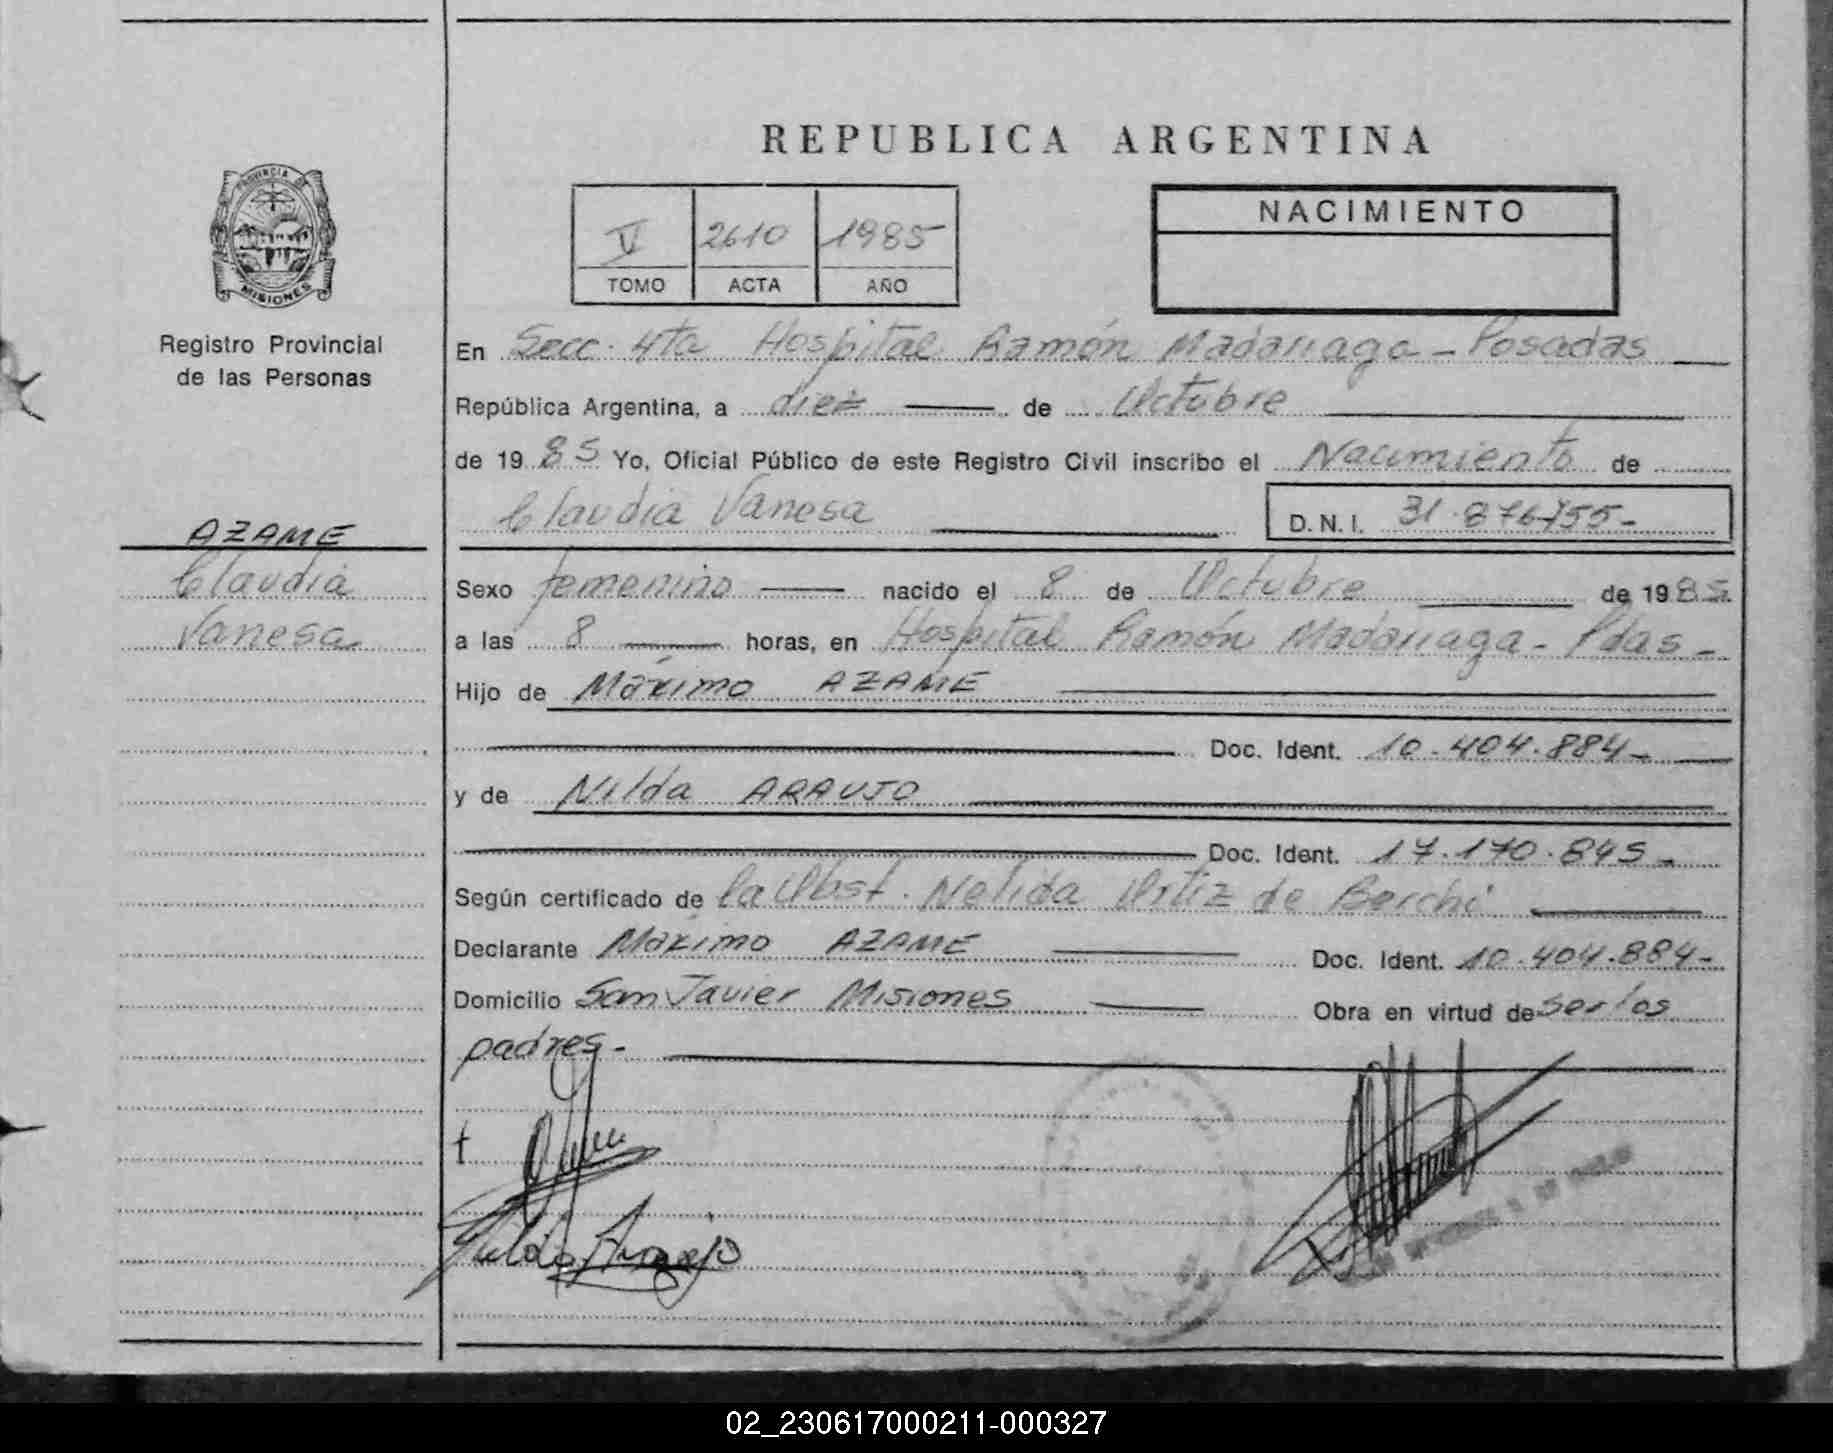 REPUBLICA ARGENTINA
PROVINCIA DE
MISIONES
Registro Provincial
de las Personas
V 2610 1985
TOMO ACTA AÑO
NACIMIENTO
En Secc. 4ta Hospital Ramón Madariaga - Posadas
República Argentina, a diez de Octubre
de 1985 Yo, Oficial Público de este Registro Civil inscribo el Nacimiento de
Claudia Vanesa D.N.I. 31.876.755-
AZAME
Claudia
Vanesa
Sexo femenino nacido el 8 de Octubre de 1985.
a las 8 horas, en Hospital Ramón Madariaga - Pdas -
Hijo de Máximo AZAME
Doc. Ident. 10.404.884-
y de Nilda ARAUJO
Doc. Ident. 17.170.845-
Según certificado de la Obst. Nelida Ortiz de Berchi
Declarante Máximo AZAME Doc. Ident. 10.404.884-
Domicilio San Javier Misiones Obra en virtud de ser los
padres.-
Nilda Araujo
02_230617000211-000327